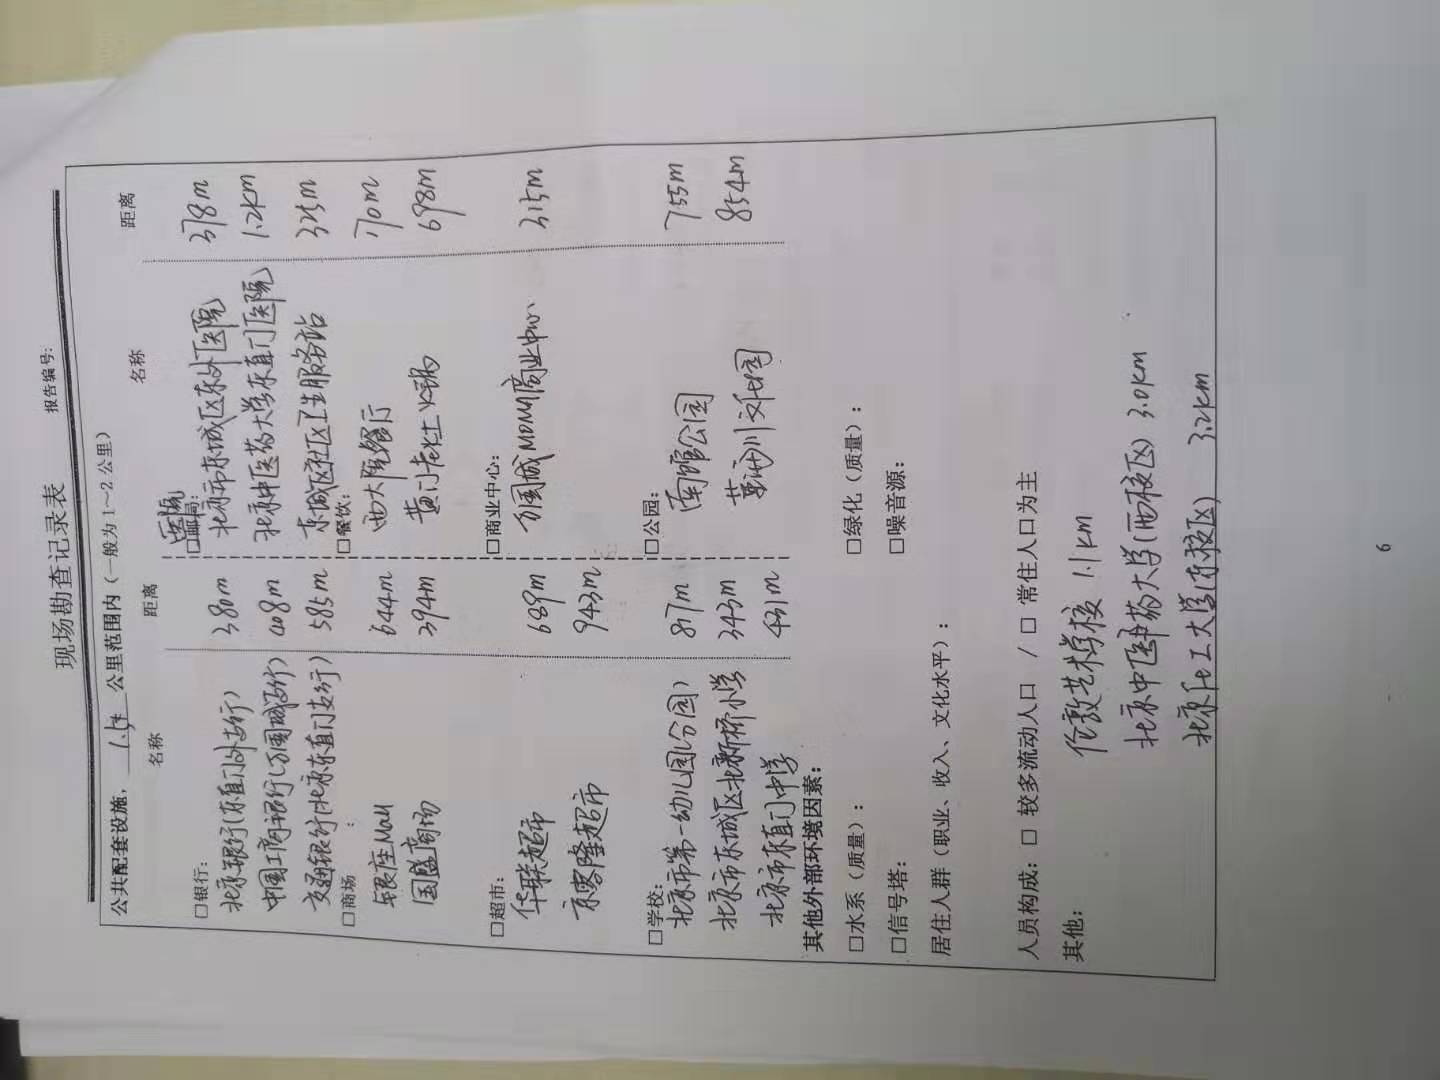 现场勘查记录表
报告编号:
公共配套设施, 公里范围内（一般为 1～2 公里）
名称 距离 名称 距离
□银行: 医院
□邮局:
北京银行(东直门外支行) 380m 北京市东城区东外医院 378m
中国工商银行(万国城支行) 408m 北京中医药大学东直门医院 1.2km
交通银行(北京东直门支行) 585m 东城区社区卫生服务站 325m
□商场 : □餐饮:
银座Mall 644m 西大院餐厅 170m
国盛商场 394m 黄门老灶火锅 698m
□超市: □商业中心:
华联超市 689m 万国城MOMA商业中心 315m
京客隆超市 943m
□学校: □公园:
北京市第一幼儿园(分园) 817m 南馆公园 755m
北京市东城区北新桥小学 343m 854m
北京市东直门中学 431m
其他外部环境因素:
□水系（质量）: □绿化（质量）:
□信号塔: □噪音源:
居住人群（职业、收入、文化水平）:
人员构成: □ 较多流动人口 / □ 常住人口为主
其他:
伦敦艺术学校 1.1km
北京中医药大学(西校区) 3.0km
北京化工大学(东校区) 3.2km
6